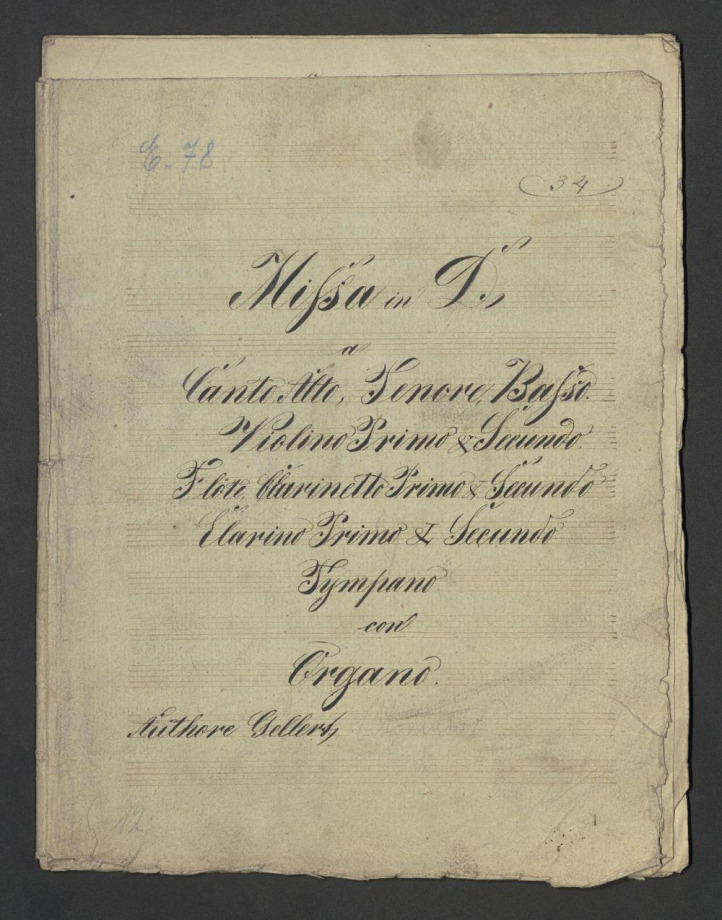 E. 78
34
Missa in D.
a
Canto Alto, Tenore, Basso.
Violino Primo & Secundo
Flöte, Clarinetto Primo & Secundo
Clarino Primo & Secundo
Tympano
con
Organo.
Authore Gellert,
12